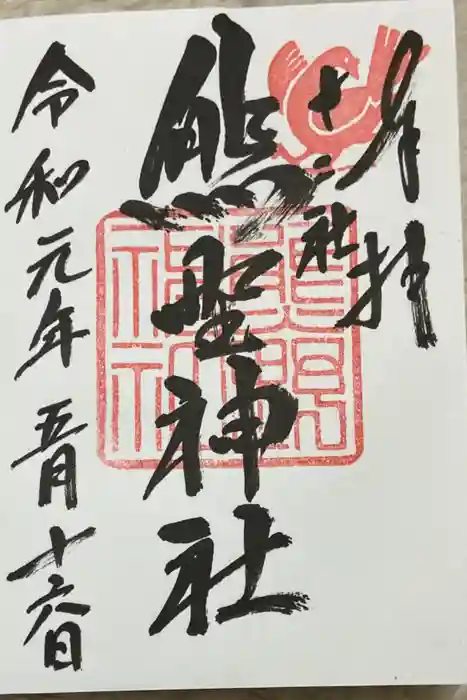 奉拝
十二社
熊野神社
令和元年 五月十六日